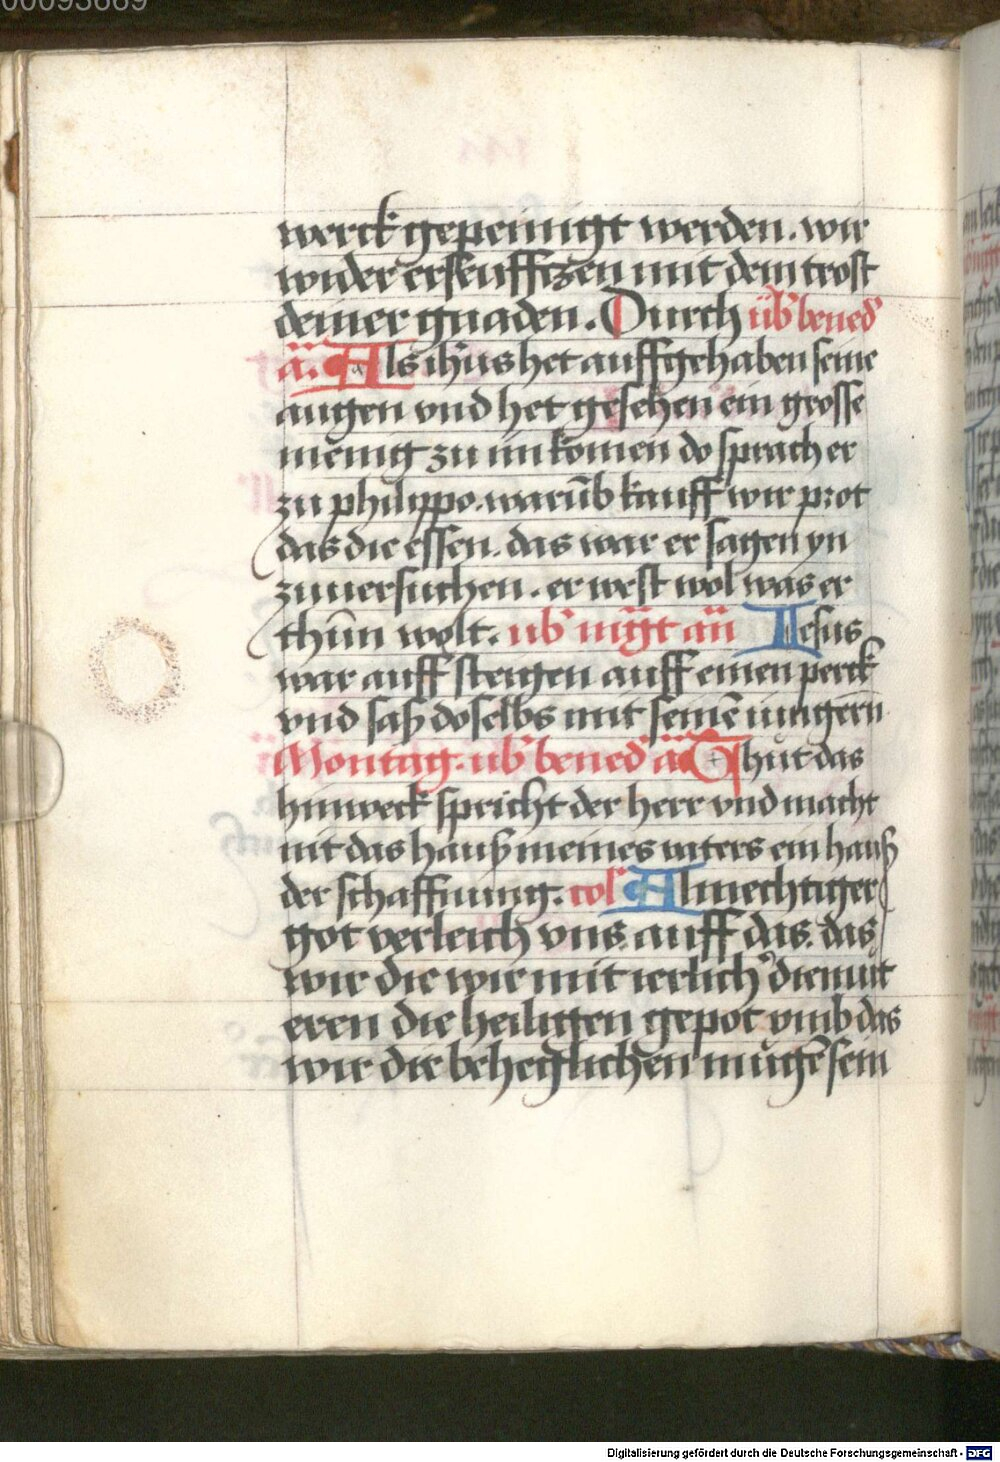 00093669
werck gepeinigt werden. wir
wider erseufftzen mit dem trost
deiner gnaden. Durch üb' bened'
a. Als ih'us het auffgehaben seine
augen vnd het gesehen ein grosse
menig zu im komen do sprach er
zu philippo. warūb kauff wir prot
das die essen. das war er sagen yn
zuuersuchen. er west wol was er
thůn wolt. üb' mgt an Iesus
war auff steigen auff einen perck
vnd saß doselbs mit seinē iungern
Montag. üb' bened' a Thůt das
hinweck spricht der herr vnd macht
nit das hauß meines vaters ein hauß
der schaffnung. col' Almechtiger
got verleich vns. auff das. das
wir die wir mit ierlich' diemut
eren die heiligen gepot vmb das
wir die beheglichen můgē sein
Digitalisierung gefördert durch die Deutsche Forschungsgemeinschaft - DFG